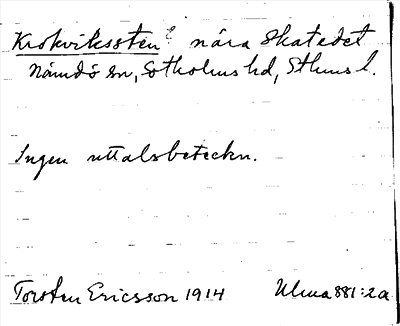 Krokvikssten? nära Skatedet
Nämdö sn, Sotholms hd, Sthms l.
Ingen uttalsbeteckn.
Torsten Ericsson 1914 Ulma 881:2a